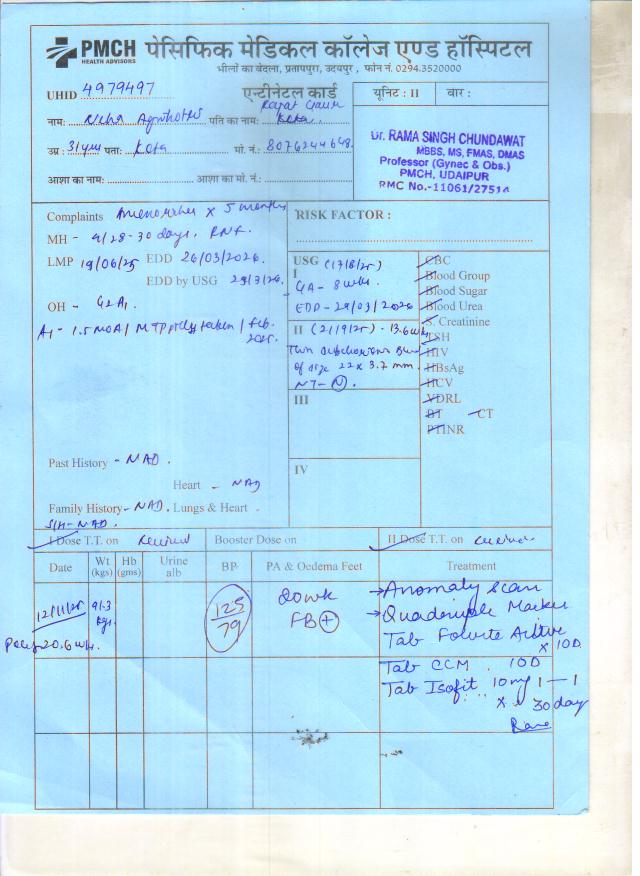 PMCH
HEALTH ADVISORS
पेसिफिक मेडिकल कॉलेज एण्ड हॉस्पिटल
भीलों का बेदला, प्रतापपुरा, उदयपुर , फोन नं. 0294.3520000
UHID 4979497
एन्टीनेटल कार्ड
यूनिट : II वार :
नाम: पति का नाम:
Kota.
उम्र : 31 पता: Kota मो. नं.: 8076244648
आशा का नाम: आशा का मो. नं.:
Dr. RAMA SINGH CHUNDAWAT
MBBS, MS, FMAS, DMAS
Professor (Gynec & Obs.)
PMCH, UDAIPUR
RMC No.-11061/27514
Complaints x 5 months
MH - 4/28-30 days,
LMP 19/06/25 EDD 26/03/2026.
EDD by USG 29/3/26.
OH - G2A1
A1 - 1.5 MOA / MTP taken / Feb.
2025.
Past History - NAD.
Heart - NAD
Family History - NAD. Lungs & Heart
S/H- NAD.
RISK FACTOR :
USG (17/8/25)
I
GA - 8 wks.
EDD - 29/03/2026
II (21/9/25) - 13.6 wks
of size 22 x 3.7 mm.
NT- (N).
III
IV
CBC
Blood Group
Blood Sugar
Blood Urea
S. Creatinine
TSH
HIV
HBsAg
HCV
VDRL
BT CT
PTINR
I Dose T.T. on received Booster Dose on II Dose T.T. on received
Date Wt (kgs) Hb (gms) Urine alb BP PA & Oedema Feet Treatment
12/11/25 91.3 kgs. 125/79 20 wk → Anomaly Scan
FB (+) → Quadruple Marker
20.6 wks. Tab Folvite Active
x 10D
Tab CCM . 10D
Tab Isofit 10mg 1 — 1
x 30 day